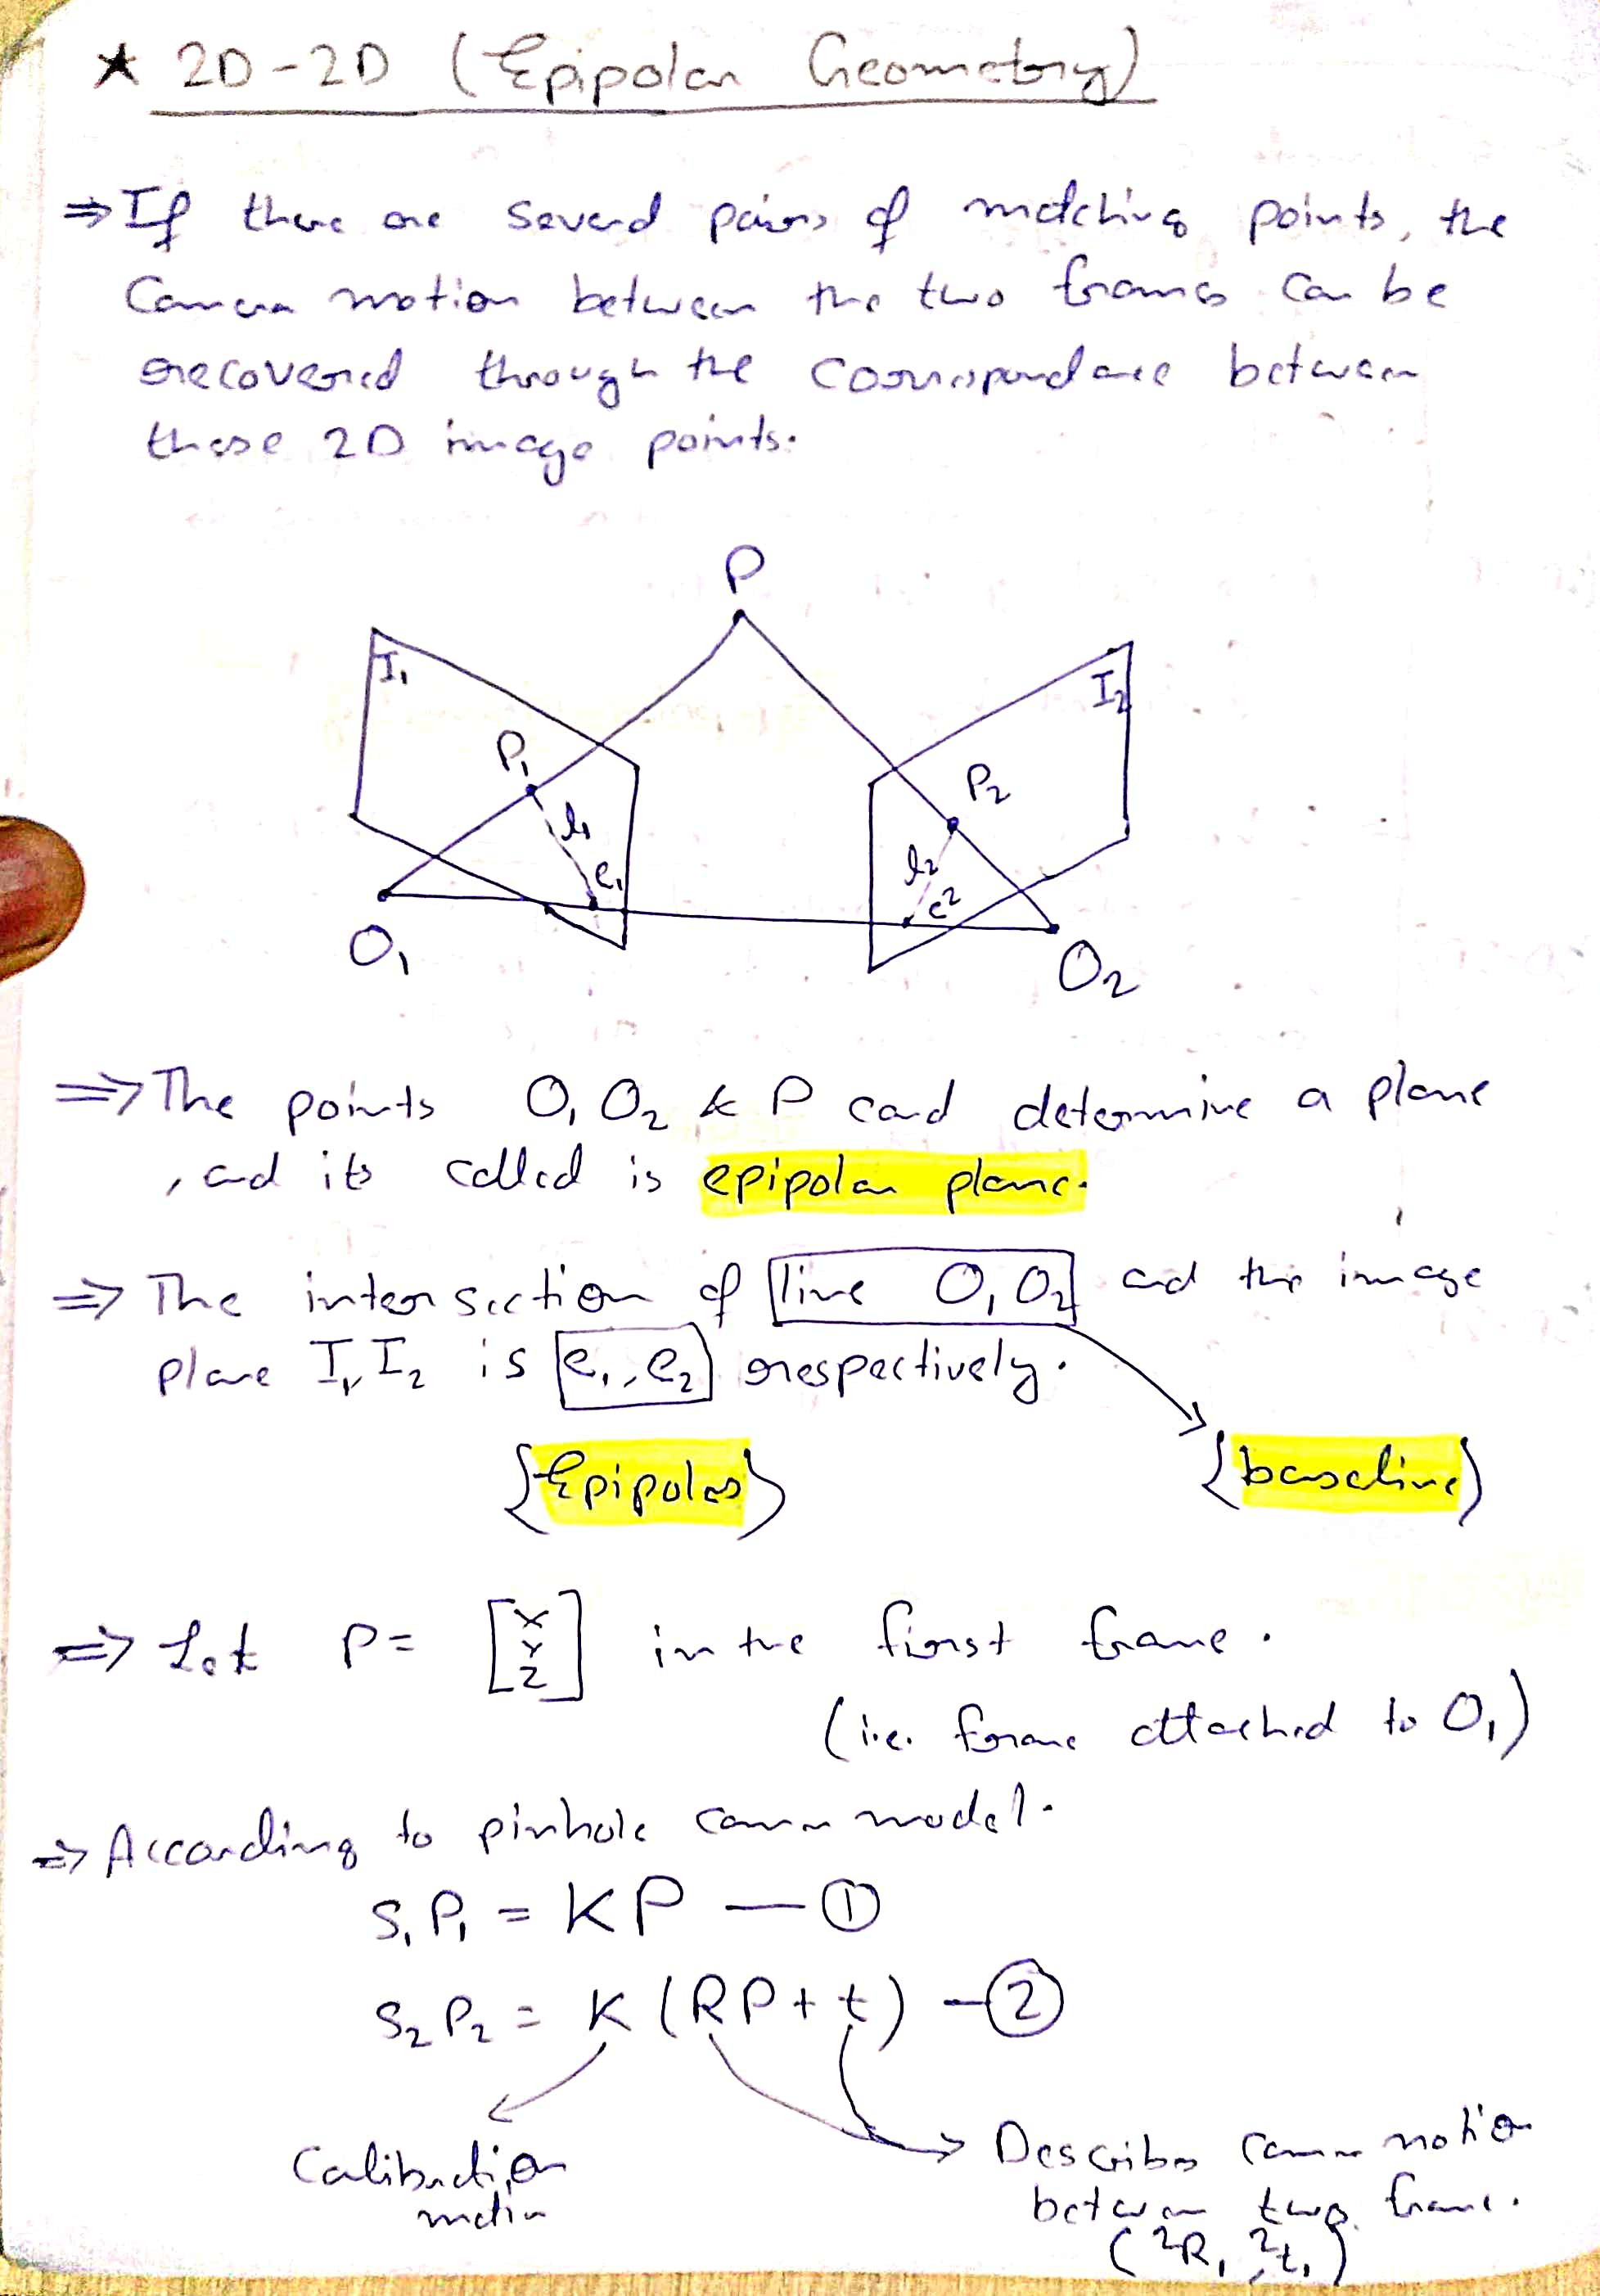 ★ 2D-2D (Epipolar Geometry)
⇒ If there are several pairs of matching points, the
Camera motion between the two frames can be
recovered through the correspondance between
these 2D image points.
P
I₁
I₂
P₁
P₂
l₁
l₂
e₁
e₂
O₁
O₂
⇒ The points O₁ O₂ & P cand determine a plane
, and its called is epipolar plane.
⇒ The intersection of line O₁ O₂ and the image
plane I₁, I₂ is e₁, e₂ respectively.
{Epipoles} {baseline}
⇒ Let P = [X Y Z] in the first frame.
(i.e. frame attached to O₁)
⇒ According to pinhole camera model.
S₁ P₁ = K P — ①
S₂ P₂ = K (RP + t) — ②
Calibration
matrix
Describes camera motion
between two frame.
(²R₁, ²t₁)